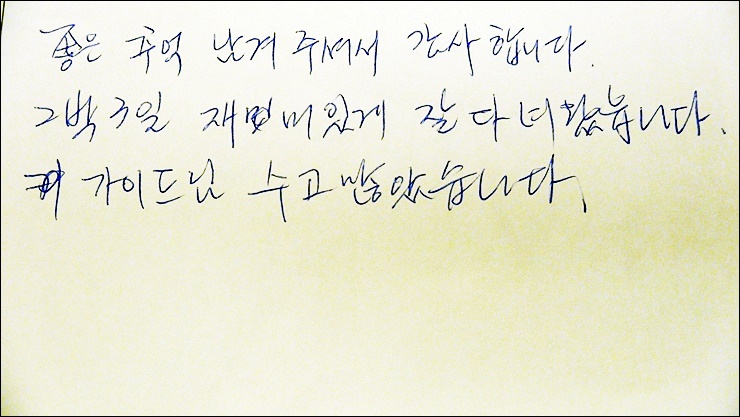 좋은 추억 남겨 주셔서 감사합니다.
2박 3일 재미있게 잘 다녀갔습니다.
가이드님 수고 많았습니다.